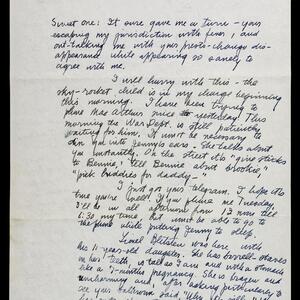 Sweet one: It sure gave me a turn - your
escaping my jurisdiction with fever, and
out-talking me with your presto-change dis-
appearance while appearing so sanely to
agree with me.
I will hurry with this - the
sky-rocket child is in my charge beginning
this morning. I have been trying to
phone Mac Arthur since yesterday! This
morning the War Dept. is still patiently
waiting for him. It must be necessary to
din you into Jenny's ears. She talks about
you constantly. On the street it is "give sticks
to Bennie", "tell Bennie about brother,"
"pick buddies for daddy-"
I just got your telegram. I hope it's
true you're well. If you phone me Tuesday,
I'll be in all afternoon from 12 now till
6:30 my time, but must be able to go to
the phone while putting Jenny to sleep.
was here, with
his 11-year-old daughter. She has barrel staves
in her teeth, is tall as I am and with a stomach
like a 7-months pregnancy. She is bossy and
and after asking petulantly to
see your bathroom said, "Why